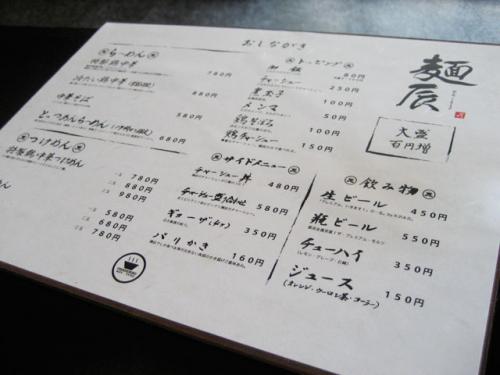 おしながき
らーめん
特製鶏中華 780円
冷たい鶏中華 880円
中華そば 580円
とっつめんらーめん 680円
つけめん
特製鶏中華つけめん
780円
880円
980円
580円
680円
780円
トッピング
80円
チャーシュー 250円
煮玉子 100円
メンマ 50円
鶏そぼろ 100円
鶏チャーシュー 150円
サイドメニュー
チャーシュー丼 480円
チャーシュー盛合せ 580円
ギョーザ 350円
パリかき 160円
麺辰
大盛
百円増
飲み物
生ビール 450円
瓶ビール 550円
チューハイ 350円
(レモン・グレープ・巨峰)
ジュース 150円
(オレンジ・ウーロン茶・コーラー)